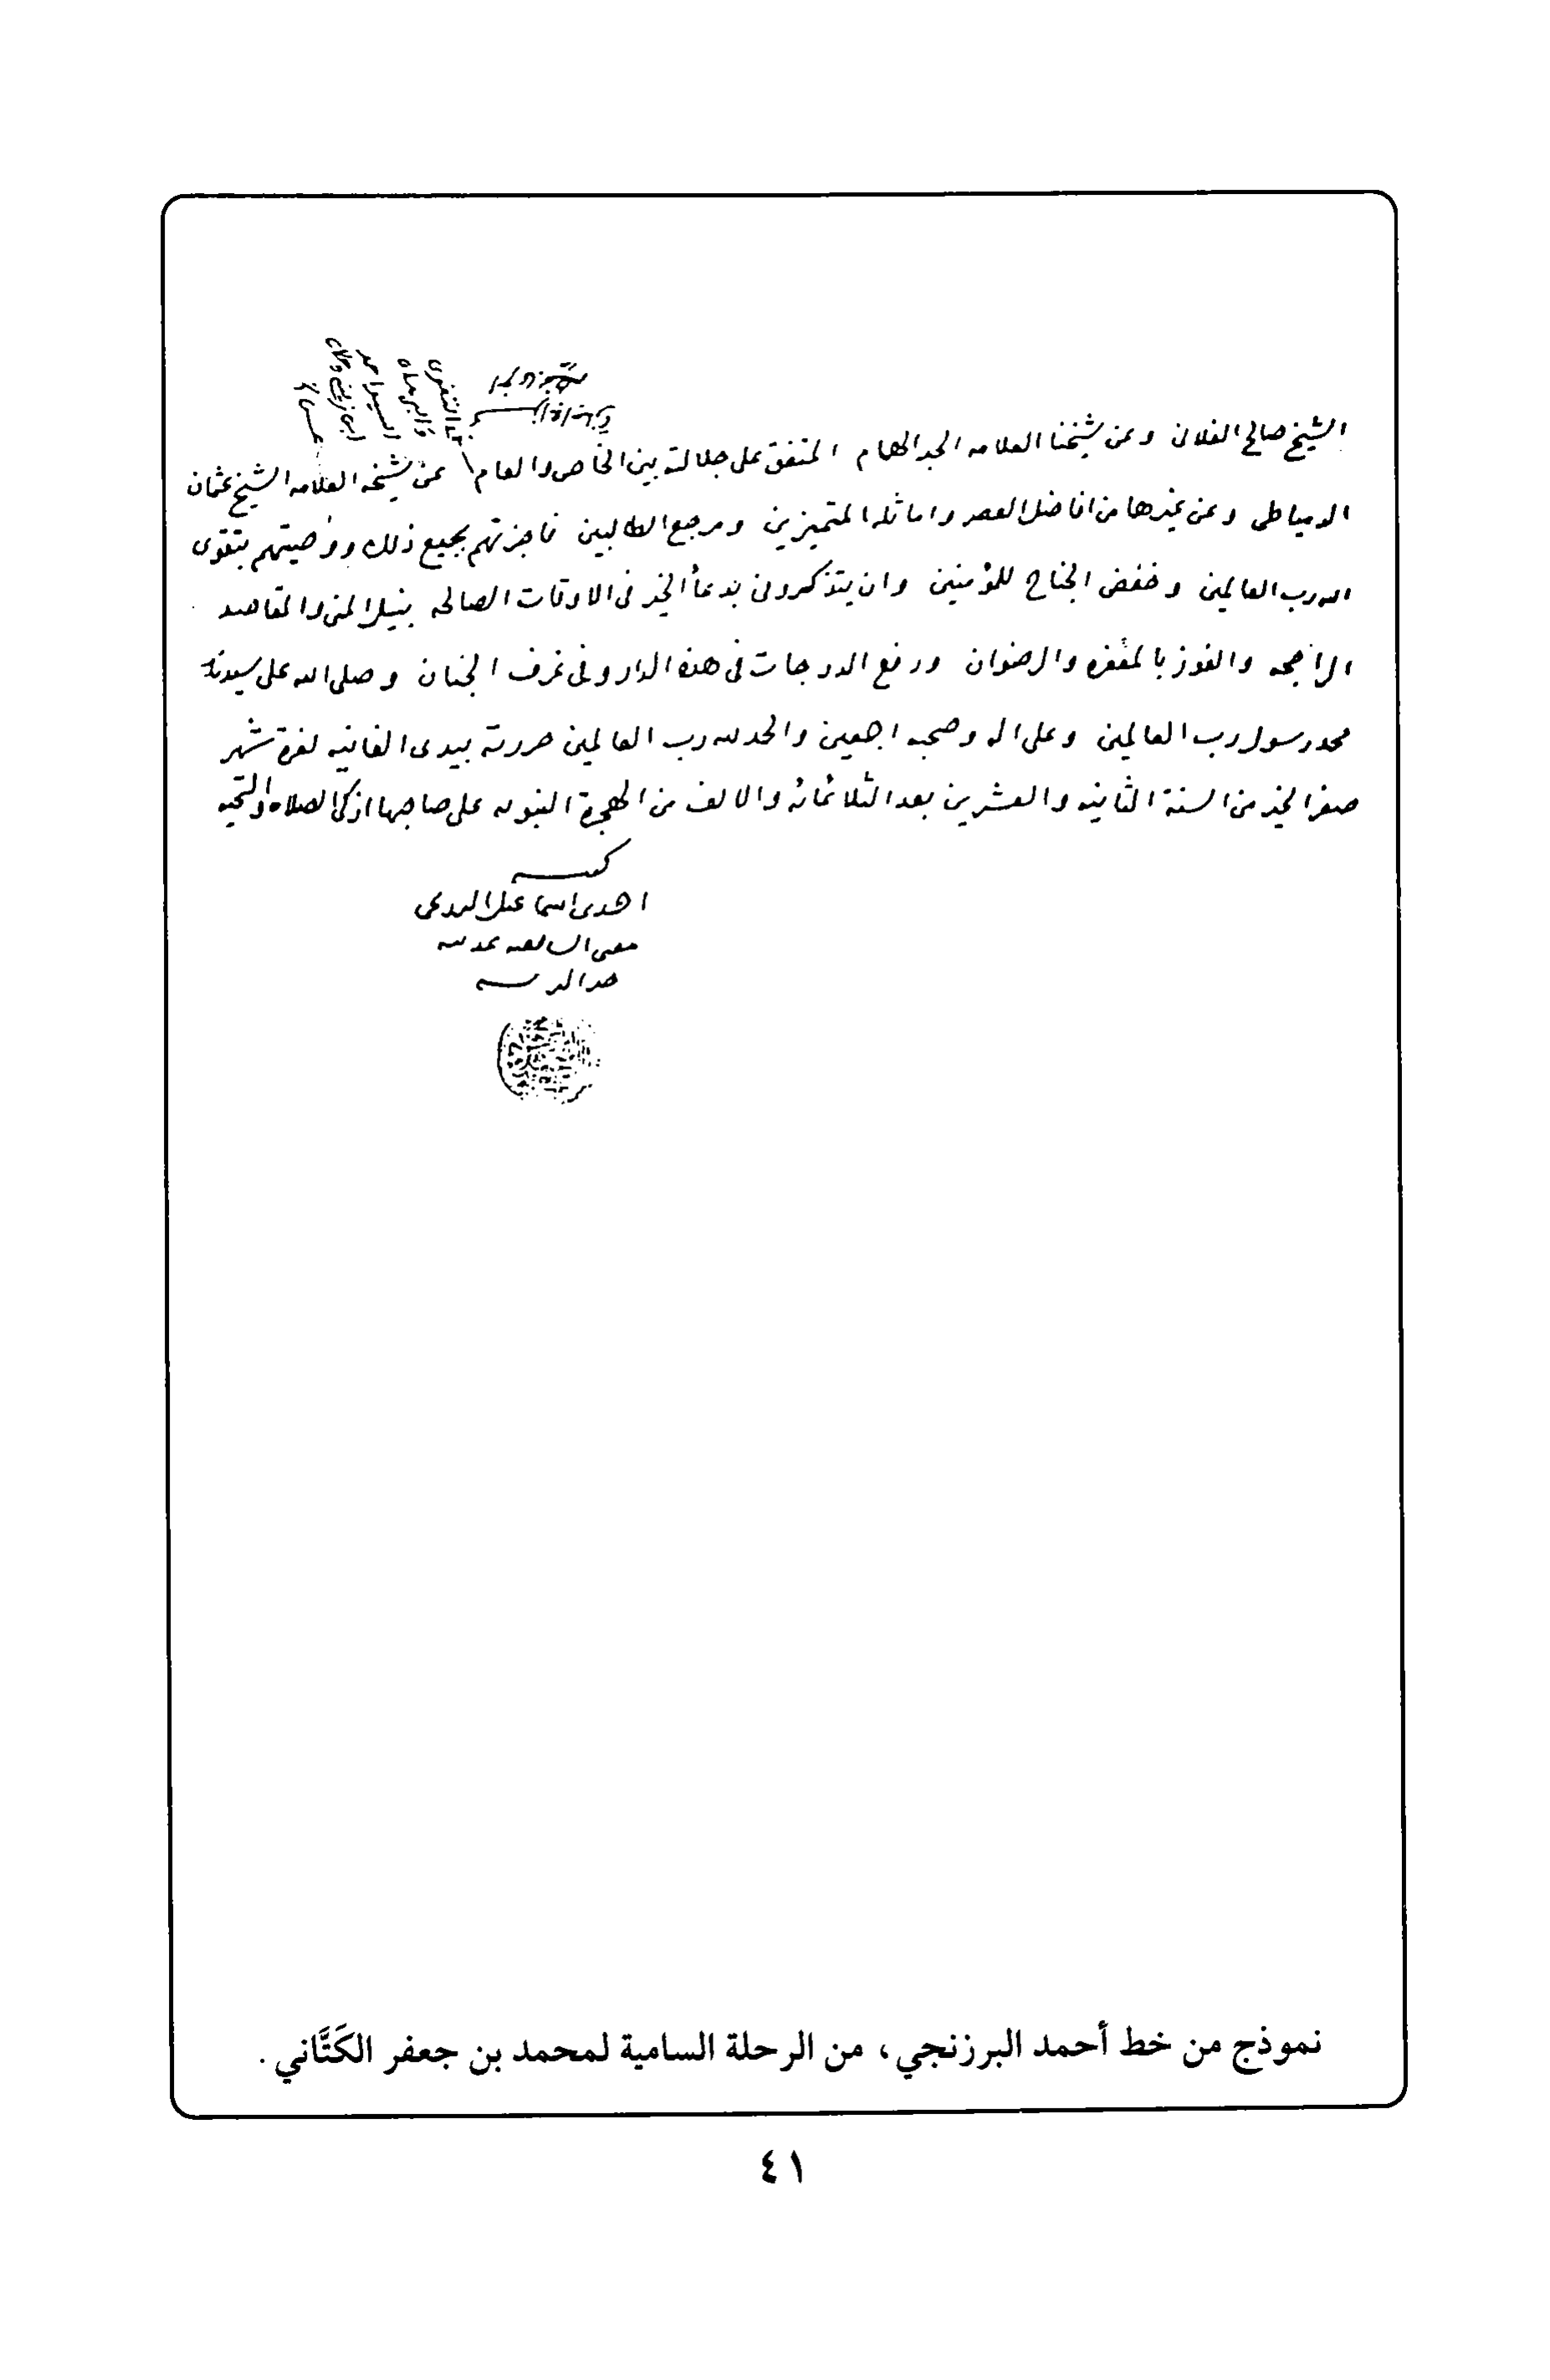 الشيخ صالح الفلاني وعن شيخنا العلامه الحبر الهمام المتفق على جلالته بين الخاص والعام عن شيخه العلامه الشيخ عثمان
الدمياطي وعن غيرها من افاضل العصر واماثله المتميزين ومرجع الطالبين فاجزتهم بجميع ذلك ووصيتهم بتقوى
الله رب العالمين وخفض الجناح للمؤمنين وان يتذكروني بدعاء الخير في الاوقات الصالحه بنيل المنى والمقاصد
والفوز بالمغفره والرضوان ورفع الدرجات في هذه الدار وفي غرف الجنان وصلى الله على سيدنا
محمد رسول رب العالمين وعلى اله وصحبه اجمعين والحمد لله رب العالمين حررته بيدي الفانيه لغرة شهر
صفر الخير من السنة الثانيه والعشرين بعد الثلاثمائه والالف من الهجرة النبويه على صاحبها ازكى الصلاه والتحيه
كتبه
احمد بن اسماعيل البرزنجي
مفتي الشافعيه بمدينة
خير البريه
نموذج من خط أحمد البرزنجي، من الرحلة السامية لمحمد بن جعفر الكَتَّاني.
٤١